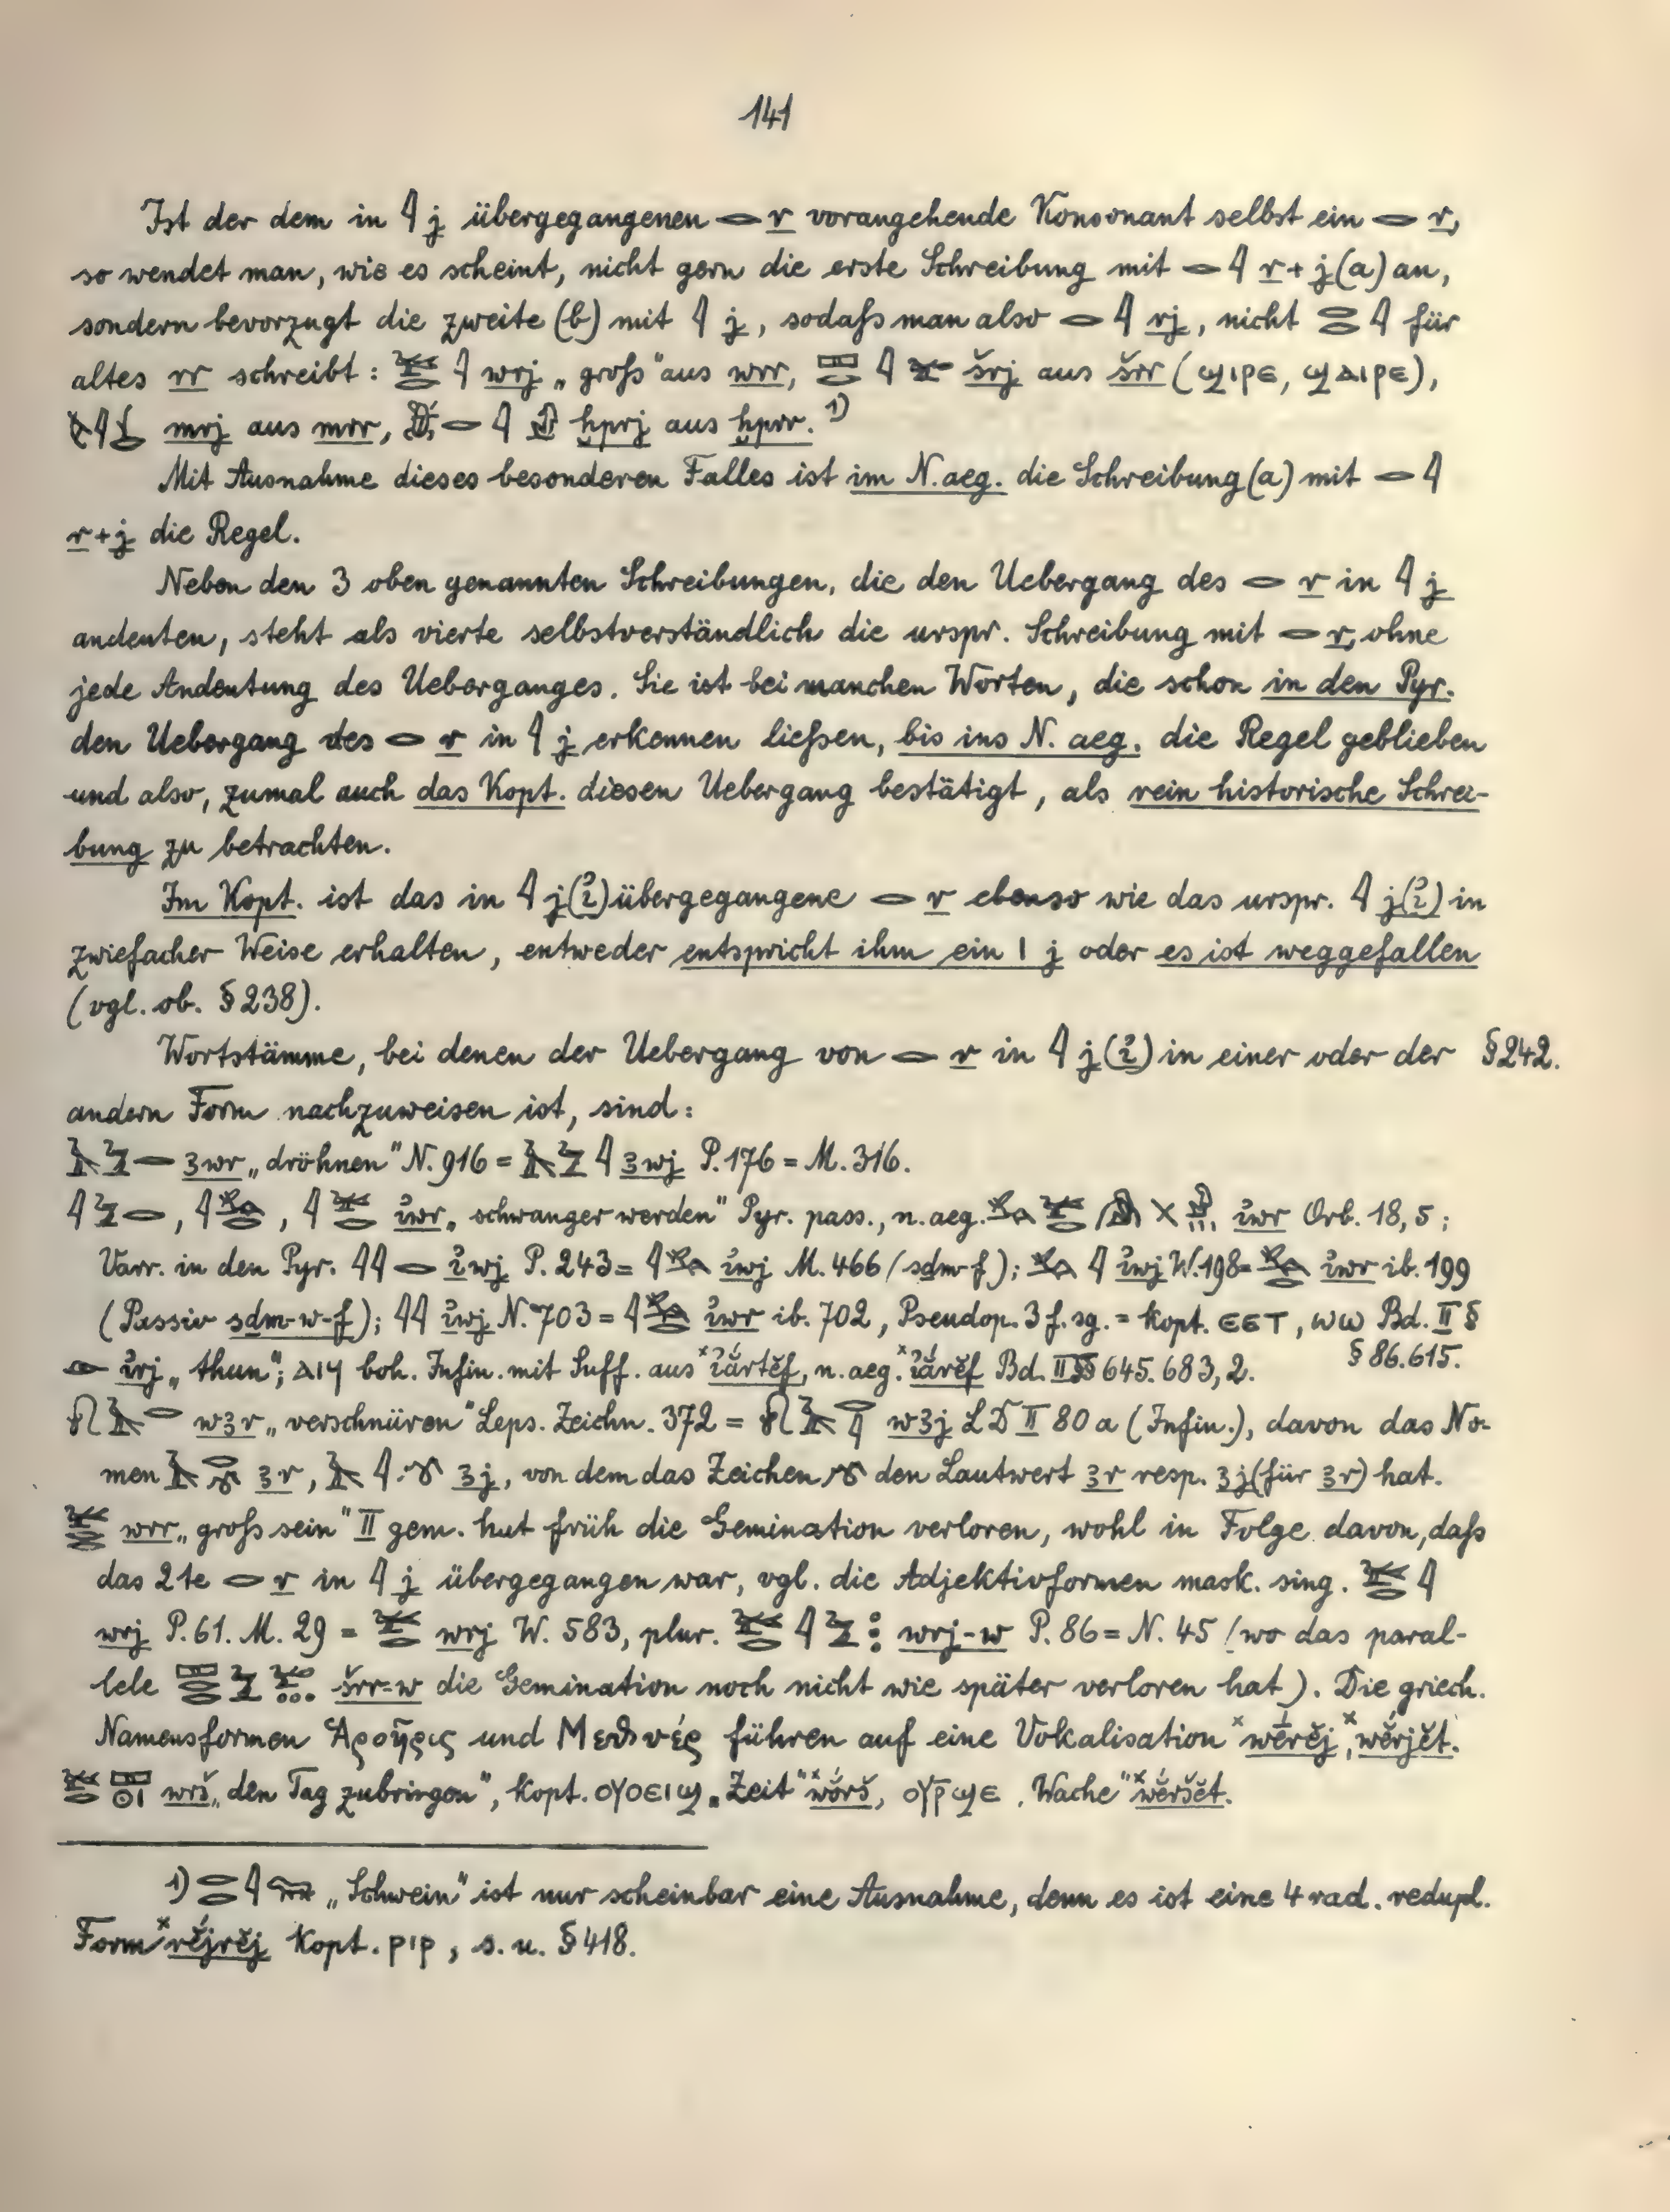 141
Ist der dem in 𓇋 j übergegangenen 𓂋 r vorangehende Konsonant selbst ein 𓂋 r,
so wendet man, wie es scheint, nicht gern die erste Schreibung mit 𓂋𓇋 r+j (a) an,
sondern bevorzugt die zweite (b) mit 𓇋 j, sodaß man also 𓂋𓇋 rj, nicht 𓂋𓂋𓇋 für
altes rr schreibt: 𓅨𓂋𓇋 wrj „groß" aus wrr, 𓈙𓂋𓇋𓅪 šrj aus šrr (ϣιρε, ϣαιρε),
mrj aus mrr, 𓂋𓇋 ḫprj aus ḫprr. 1)
Mit Ausnahme dieses besonderen Falles ist im N.aeg. die Schreibung (a) mit 𓂋𓇋
r+j die Regel.
Neben den 3 oben genannten Schreibungen, die den Uebergang des 𓂋 r in 𓇋 j
andeuten, steht als vierte selbstverständlich die urspr. Schreibung mit 𓂋 r, ohne
jede Andeutung des Ueberganges. Sie ist bei manchen Worten, die schon in den Pyr.
den Uebergang des 𓂋 r in 𓇋 j erkennen ließen, bis ins N. aeg. die Regel geblieben
und also, zumal auch das Kopt. diesen Uebergang bestätigt, als rein historische Schrei-
bung zu betrachten.
Im Kopt. ist das in 𓇋 j (ỉ) übergegangene 𓂋 r ebenso wie das urspr. 𓇋 j (ỉ) in
zwiefacher Weise erhalten, entweder entspricht ihm ein ⲓ j oder es ist weggefallen
(vgl. ob. § 238).
Wortstämme, bei denen der Uebergang von 𓂋 r in 𓇋 j (ỉ) in einer oder der § 242.
andern Form nachzuweisen ist, sind:
𓄿𓅱𓂋 ꜣwr „dröhnen" N. 916 = 𓄿𓅱𓇋 ꜣwj P. 176 = M. 316.
𓇋𓅱𓂋, 𓇋 , 𓇋𓅨𓂋 ỉwr „schwanger werden" Pyr. pass., n.aeg. ỉwr Orb. 18,5;
Varr. in den Pyr. 𓇋𓇋𓂋 ỉwj P. 243 = 𓇋 ỉwj M. 466 (sdm-f); 𓇋 ỉwj W. 198 = ỉwr ib. 199
(Passiv sdm-w-f); 𓇋𓇋 ỉwj N. 703 = 𓇋 ỉwr ib. 702, Pseudop. 3 f. sg. = kopt. ⲉⲉⲧ, ⲱⲱ Bd. II §
§ 86. 615.
𓁹 ỉrj „thun"; ⲁⲓϥ boh. Infin. mit Suff. aus ˣỉắrtĕf, n. aeg. ˣỉắrĕf Bd. II §§ 645. 683, 2.
𓍯𓄿𓂋 wꜣr „verschnüren" Leps. Zeichn. 372 = 𓍯𓄿𓂋𓇋 wꜣj LD II 80 a (Infin.), davon das No-
men 𓄿𓂋 ꜣr, 𓄿𓇋 ꜣj, von dem das Zeichen den Lautwert ꜣr resp. ꜣj (für ꜣr) hat.
𓅨𓂋𓂋 wrr „groß sein" II gem. hat früh die Gemination verloren, wohl in Folge davon, daß
das 2te 𓂋 r in 𓇋 j übergegangen war, vgl. die Adjektivformen mask. sing. 𓅨𓂋𓇋
wrj P. 61. M. 29 = 𓅨𓂋 wrj W. 583, plur. 𓅨𓂋𓇋𓅱 wrj-w P. 86 = N. 45 (wo das paral-
lele 𓈙𓂋𓂋𓅱𓅪 šrr-w die Gemination noch nicht wie später verloren hat). Die griech.
Namensformen Ἁροῆρις und Μεθυέρ führen auf eine Vokalisation ˣwḗrĕj, ˣwĕ́rjĕt.
𓅨𓂋𓈙𓇳 wrš „den Tag zubringen", kopt. ⲟⲩⲟⲉⲓϣ „Zeit" ˣwŏ́rš, ⲟⲩⲣ̄ϣⲉ „Wache" ˣwĕ́ršĕt.
1) 𓂋𓂋𓇋 „Schwein" ist nur scheinbar eine Ausnahme, denn es ist eine 4 rad. redupl.
Form ˣrĕ́jrĕj kopt. ⲣⲓⲣ, s. u. § 418.